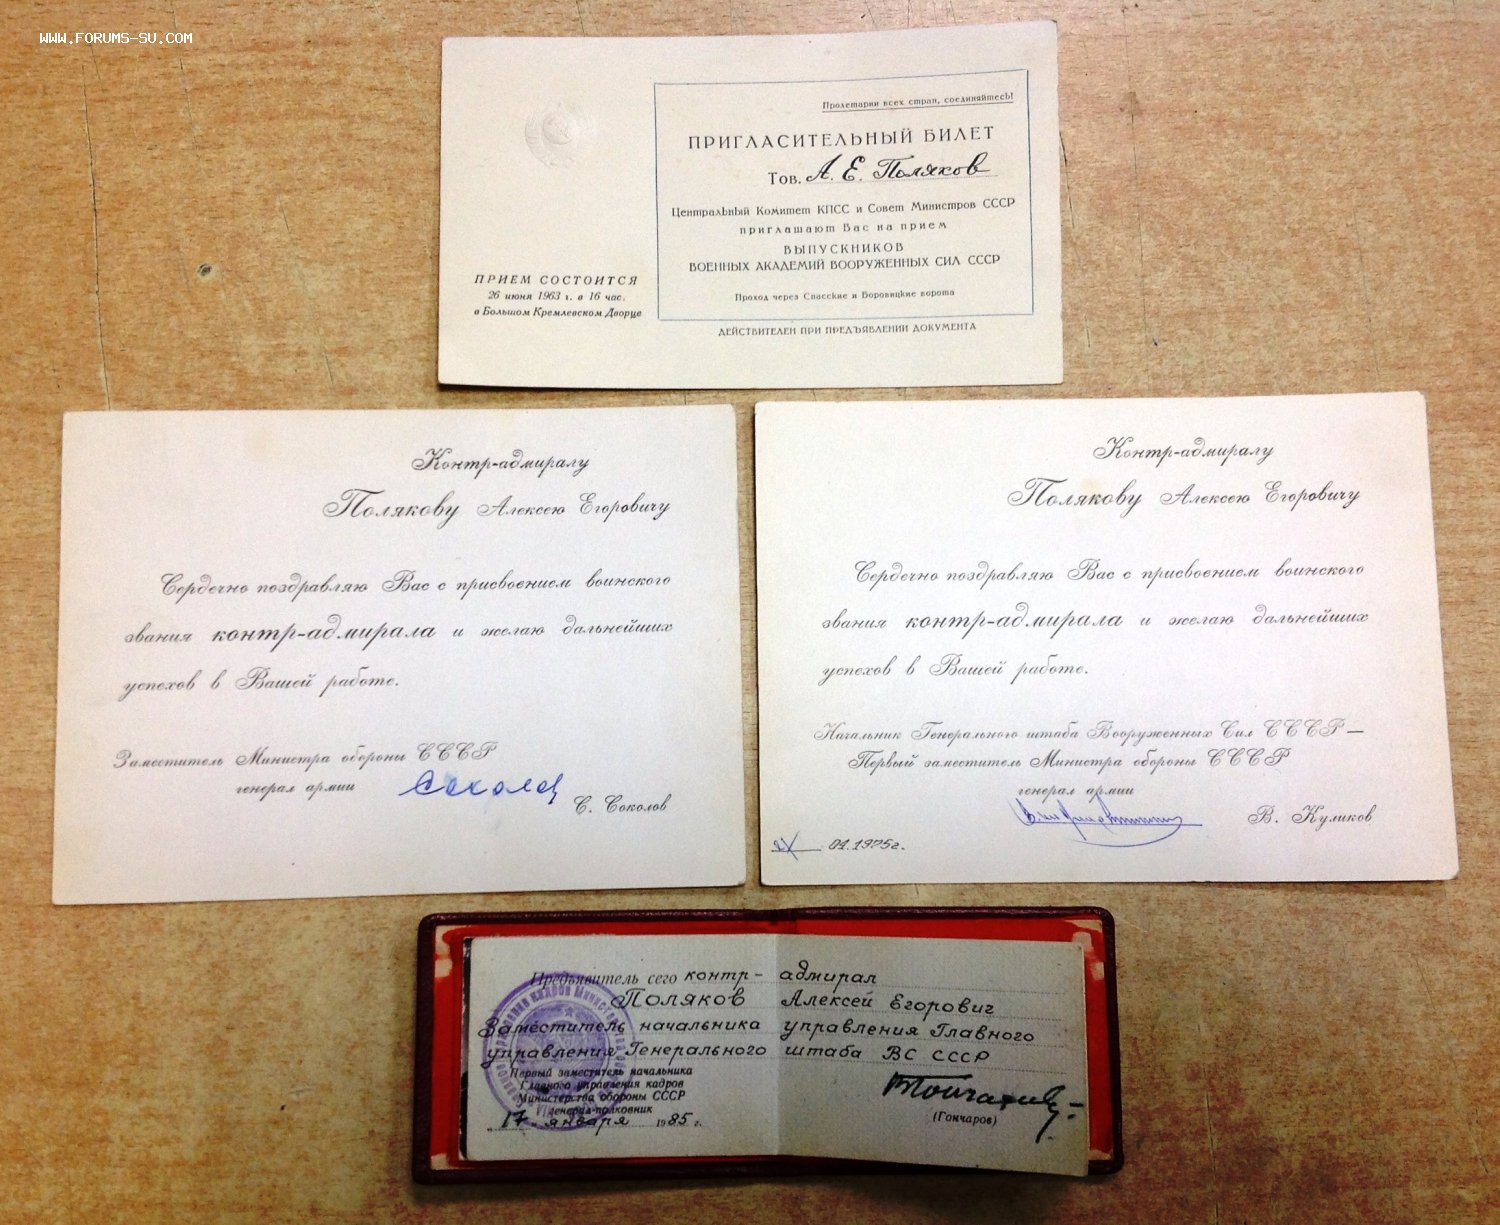 WWW.FORUMS-SU.COM
Пролетарии всех стран, соединяйтесь!
ПРИГЛАСИТЕЛЬНЫЙ БИЛЕТ
Тов. А. Е. Поляков
Центральный Комитет КПСС и Совет Министров СССР
приглашают Вас на прием
ВЫПУСКНИКОВ
ВОЕННЫХ АКАДЕМИЙ ВООРУЖЕННЫХ СИЛ СССР
Проход через Спасские и Боровицкие ворота
ДЕЙСТВИТЕЛЕН ПРИ ПРЕДЪЯВЛЕНИИ ДОКУМЕНТА
ПРИЕМ СОСТОИТСЯ
26 июня 1963 г. в 16 час.
в Большом Кремлевском Дворце
Контр-адмиралу
Полякову Алексею Егоровичу
Сердечно поздравляю Вас с присвоением воинского
звания контр-адмирала и желаю дальнейших
успехов в Вашей работе.
Заместитель Министра обороны СССР
генерал армии
Соколов
С. Соколов
Контр-адмиралу
Полякову Алексею Егоровичу
Сердечно поздравляю Вас с присвоением воинского
звания контр-адмирала и желаю дальнейших
успехов в Вашей работе.
Начальник Генерального штаба Вооруженных Сил СССР —
Первый заместитель Министра обороны СССР
генерал армии
В. Куликов
04.1975г.
Предъявитель сего контр-адмирал
Поляков Алексей Егорович
Заместитель начальника управления Главного
управления Генерального штаба ВС СССР
Первый заместитель начальника
Главного управления кадров
Министерства обороны СССР
генерал-полковник
(Гончаров)
17 января 1985 г.